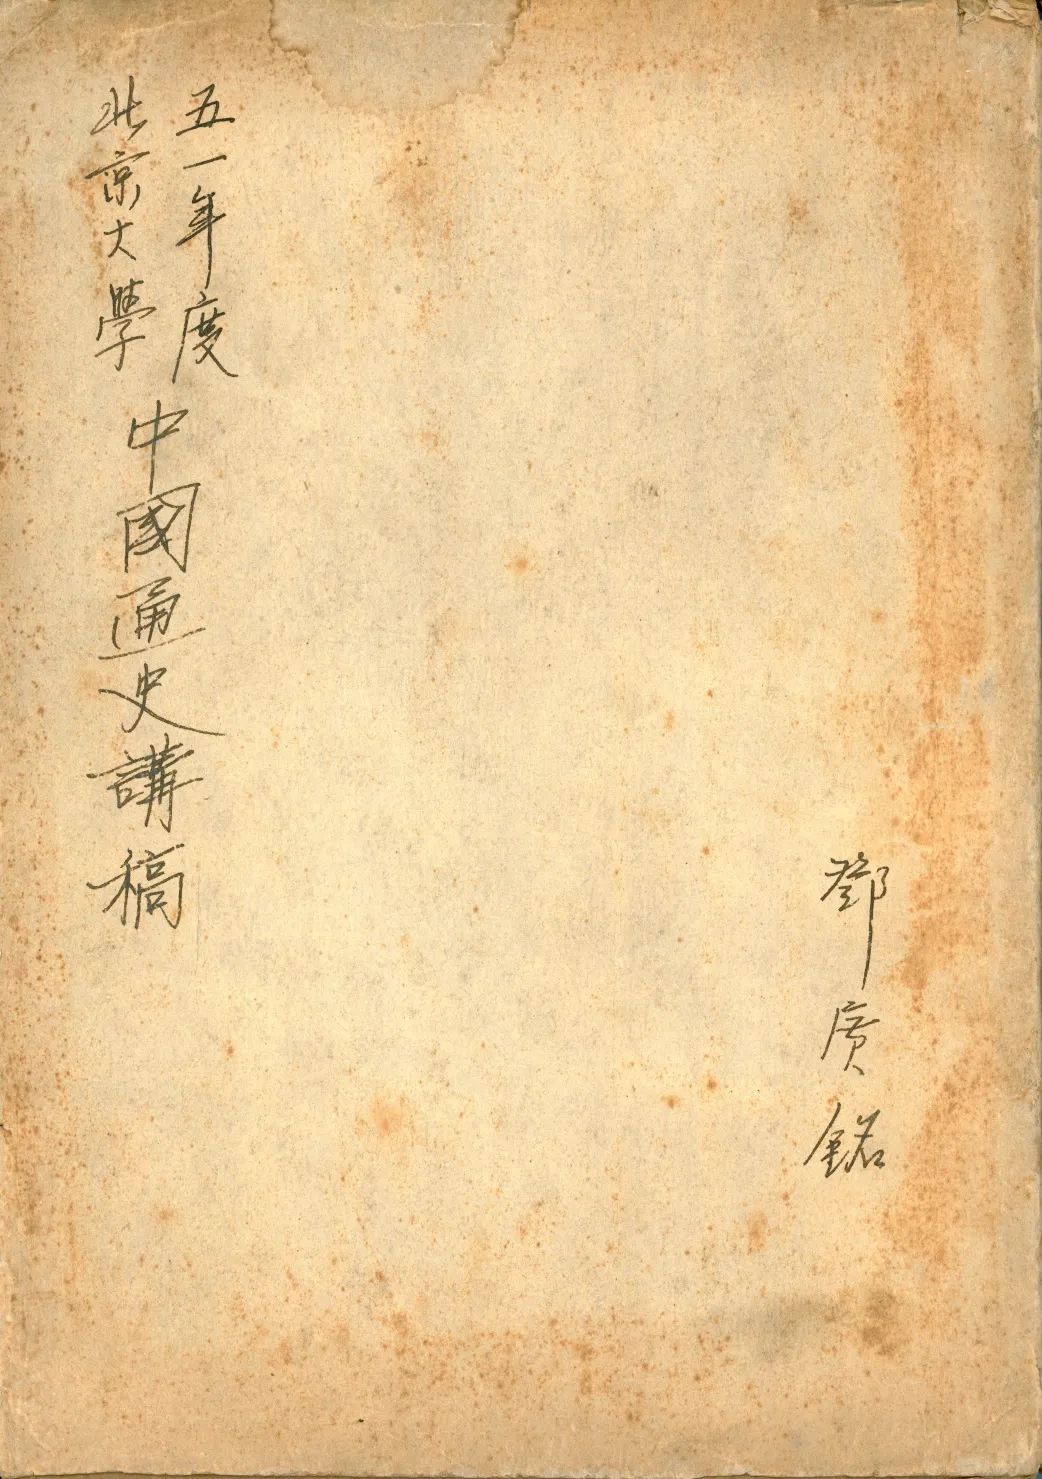 五一年度
北京大學
中國通史講稿
鄧廣銘